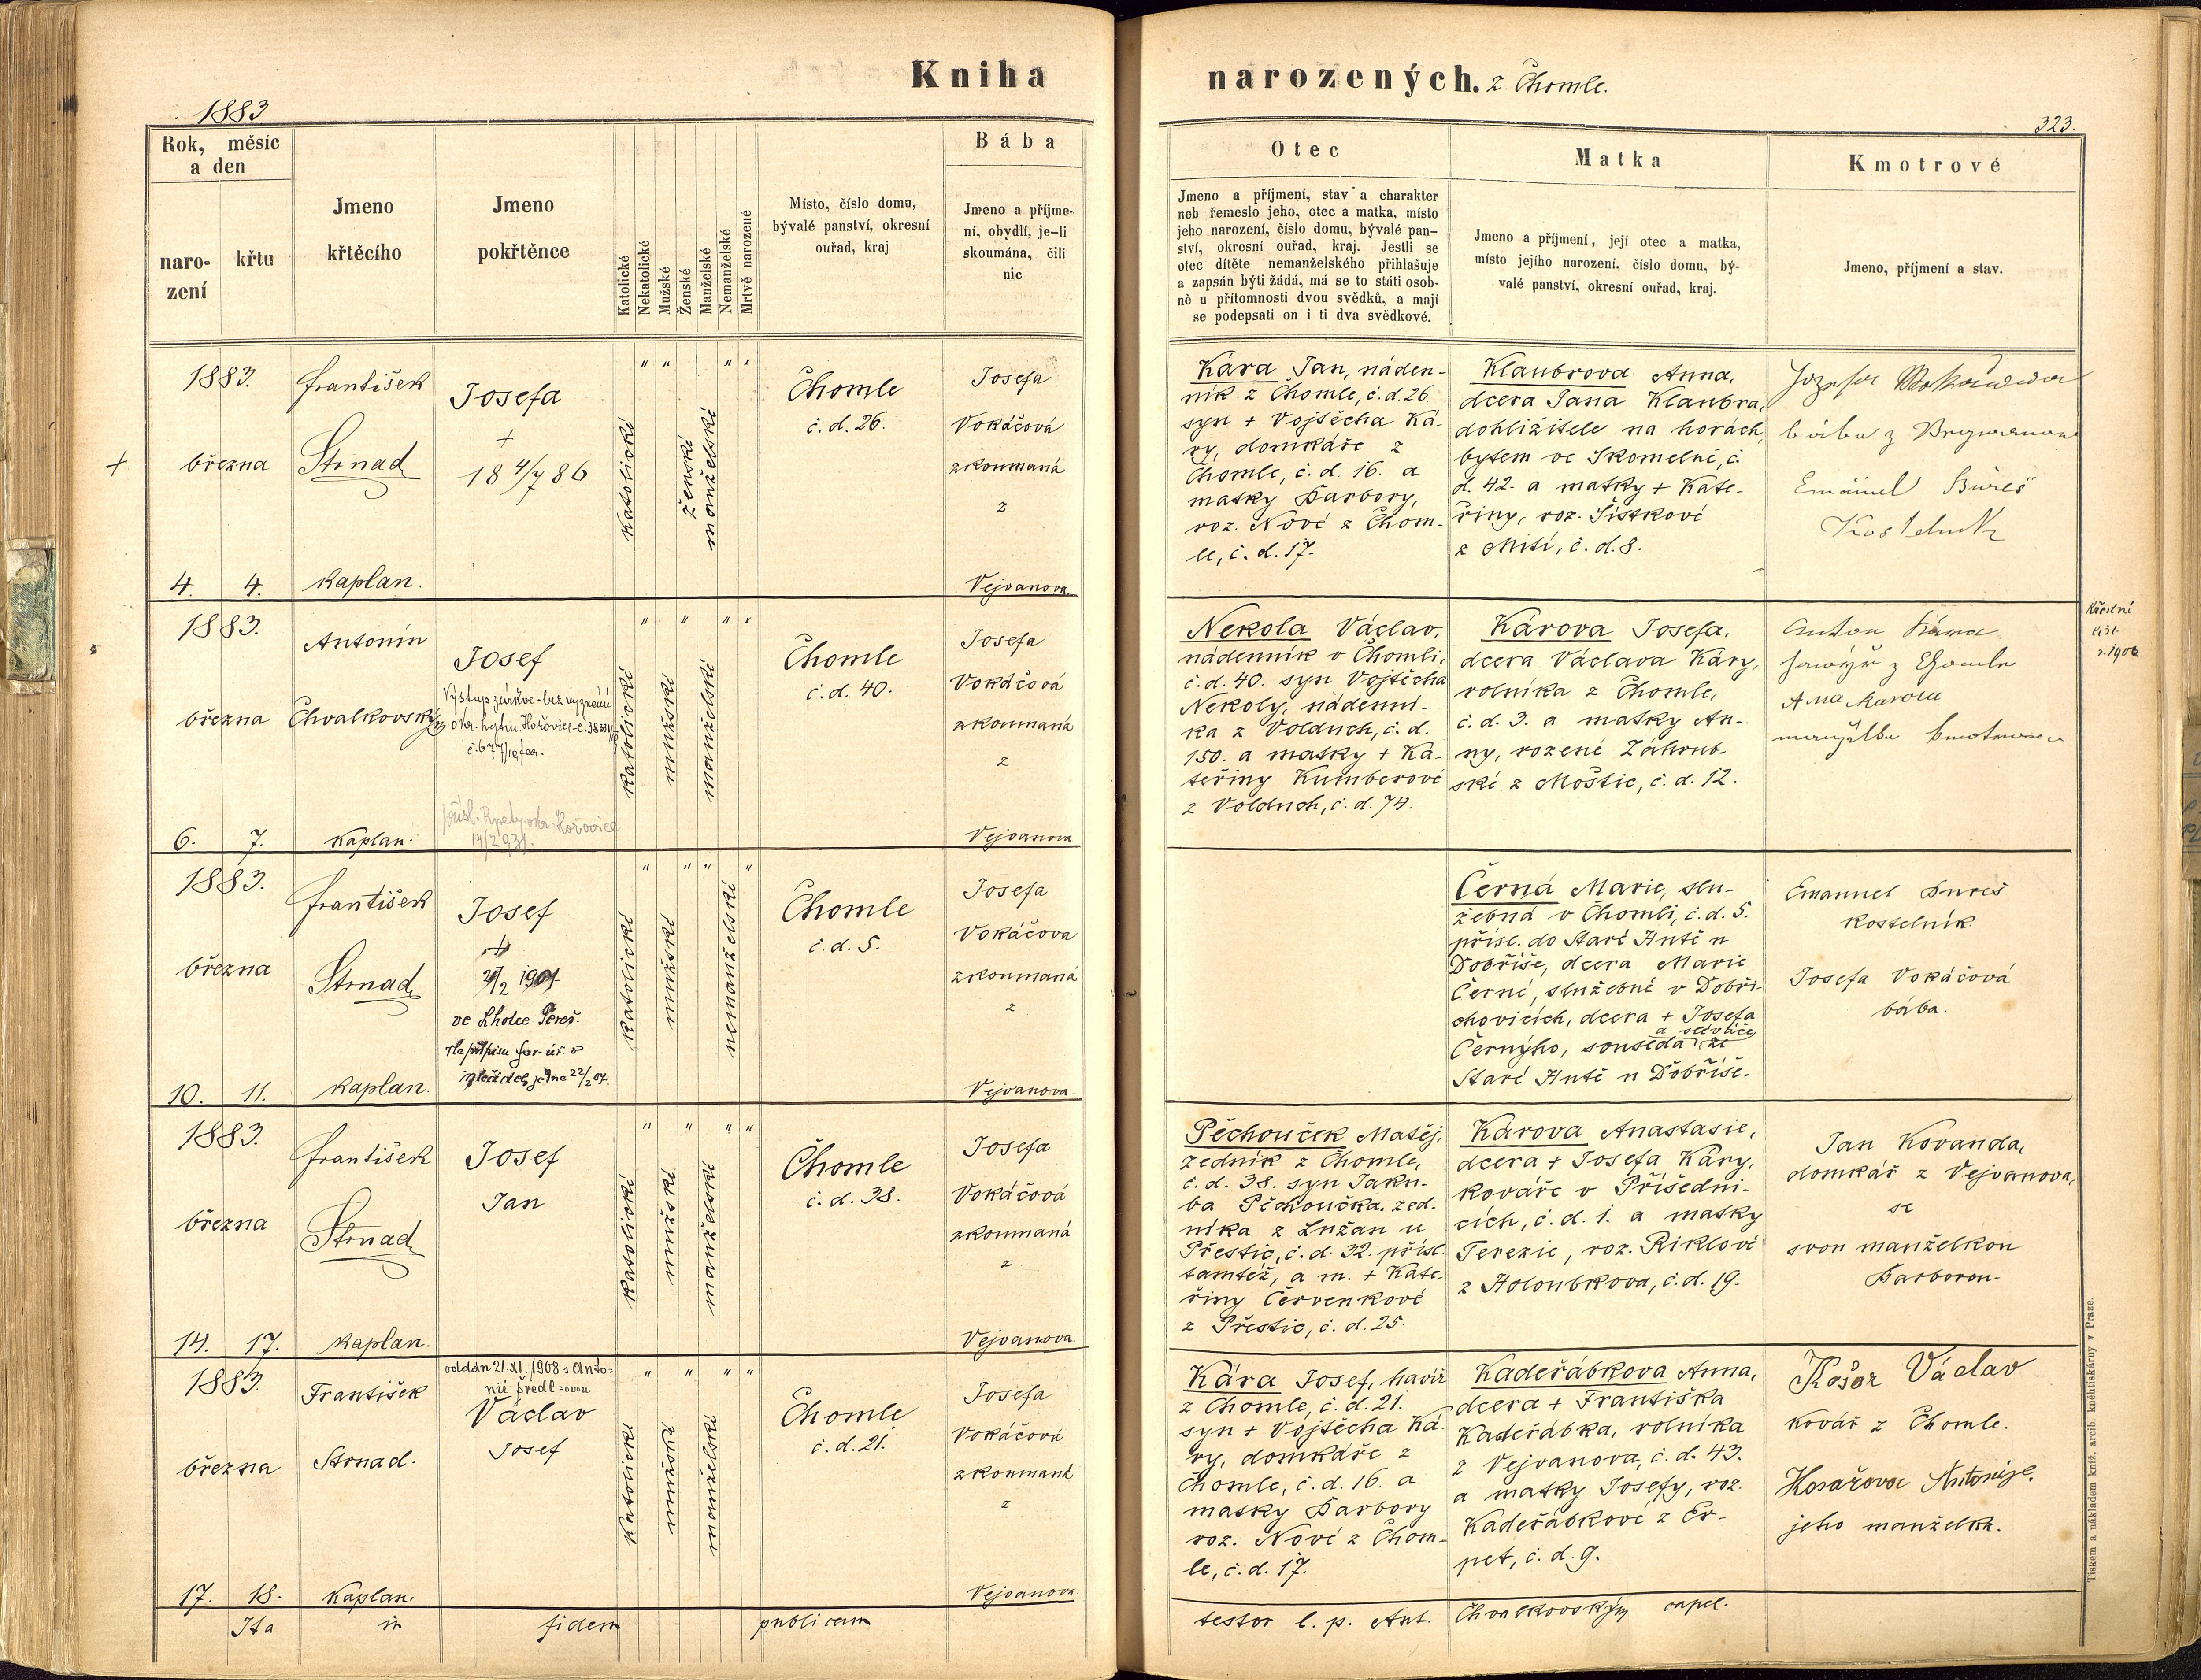 Kniha
narozených. z Chomle.
1883
323.
Rok, měsíc
a den
naro-
zení
křtu
Jmeno
křtěcího
Jmeno
pokřtěnce
Katolické
Nekatolické
Mužské
Ženské
Manželské
Nemanželské
Mrtvě narozené
Místo, číslo domu,
bývalé panství, okresní
ouřad, kraj
Bába
Jmeno a příjme-
ní, obydlí, je-li
skoumána, čili
nic
Otec
Jmeno a příjmení, stav a charakter
neb řemeslo jeho, otec a matka, místo
jeho narození, číslo domu, bývalé pan-
ství, okresní ouřad, kraj. Jestli se
otec dítěte nemanželského přihlašuje
a zapsán býti žádá, má se to státi osob-
ně u přítomnosti dvou svědků, a mají
se podepsati on i ti dva svědkové.
Matka
Jmeno a příjmení, její otec a matka,
místo jejího narození, číslo domu, bý-
valé panství, okresní ouřad, kraj.
Kmotrové
Jmeno, příjmení a stav.
1883.
března
4. 4.
František
Strnad
kaplan.
Josefa
+
18 4/7 86
katolické
" "
ženské
manželské
" "
Chomle
č. d. 26.
Josefa
Vokáčová
zkoumaná
z
Vejvanova.
Kára Jan, náden-
ník z Chomle, č. d. 26.
syn + Vojtěcha Ká-
ry, domkáře z
Chomle, č. d. 16. a
matky Barbory,
roz. Nové z Chom-
le, č. d. 17.
Klaubrová Anna,
dcera Jana Klaubra,
dohližitele na horách,
bytem ve Skomelně, č.
d. 42. a matky + Kate-
řiny, roz. Šístkové
z Mití, č. d. 8.
bába z
Bureš
Kostelník
1883.
března
6. 7.
Antonín
Chvalkovský
kaplan.
Josef
Výstup z církve - bez vyznání
okr. hejtm. Hořovice
katolické
"
mužské
"
manželské
" "
Chomle
č. d. 40.
Josefa
Vokáčová
zkoumaná
z
Vejvanova
Nekola Václav,
nádenník v Chomli,
č. d. 40. syn Vojtěcha
Nekoly, nádenní-
ka z Volduch, č. d.
150. a matky + Ka-
teřiny Kumberové
z Volduch, č. d. 74.
Károva Josefa,
dcera Václava Káry,
rolníka z Chomle,
č. d. 3. a matky An-
ny, rozené Záhrub-
ské z Moštic, č. d. 12.
Anton Kára
z Chomle
Křestní
list
1883.
března
10. 11.
František
Strnad
kaplan.
Josef
+
ve Lhotce
katolické
"
mužské
" "
nemanželské
"
Chomle
č. d. 5.
Josefa
Vokáčova
zkoumaná
z
Vejvanova
Černá Marie, slu-
žebná v Chomli, č. d. 5.
přísl. do Staré Hutě u
Dobříše, dcera Marie
Černé, služebné v Dobři-
chovicích, dcera + Josefa
Černýho, souseda a sedláče, ze
Staré Hutě u Dobříše.
Emanuel Bureš
kostelník.
Josefa Vokáčová
bába.
1883.
března
14. 17.
František
Strnad
kaplan.
Josef
Jan
katolické
"
mužské
"
manželské
" "
Chomle
č. d. 38.
Josefa
Vokáčová
zkoumaná
z
Vejvanova
Pěchouček Matěj,
zedník z Chomle,
č. d. 38. syn Jaku-
ba Pěchoučka, zed-
níka z Lužan u
Přestic, č. d. 32. přísl.
tamtéž, a m. + Kate-
řiny Červenkové
z Přestic, č. d. 25.
Károva Anastasie,
dcera + Josefa Káry,
kováře v Příšedni-
cích, č. d. 1. a matky
Terezie, roz. Riklové
z Holoubkova, č. d. 19.
Jan Kovanda,
domkář z Vejvanova,
se
svou manželkou
Barborou.
1883.
března
17. 18.
František
Strnad.
kaplan.
oddán 21. XI. 1908 s Anto-
nií
Václav
Josef
katolické
"
mužské
"
manželské
" "
Chomle
č. d. 21.
Josefa
Vokáčová
zkoumaná
z
Vejvanova
Kára Josef, havíř
z Chomle, č. d. 21.
syn + Vojtěcha Ká-
ry, domkáře z
Chomle, č. d. 16. a
matky Barbory
roz. Nové z Chom-
le, č. d. 17.
Kadeřábkova Anna,
dcera + Františka
Kadeřábka, rolníka
z Vejvanova, č. d. 43.
a matky Josefy, roz.
Kadeřábkové z Er-
pet, č. d. 9.
Václav
kovář z Chomle.
jeho manželka.
Ita in fidem publicam
testor l. p. Ant. Chvalkovský capel.
Tiskem a nákladem kníž. arcib. knéhtiskárny v Praze.